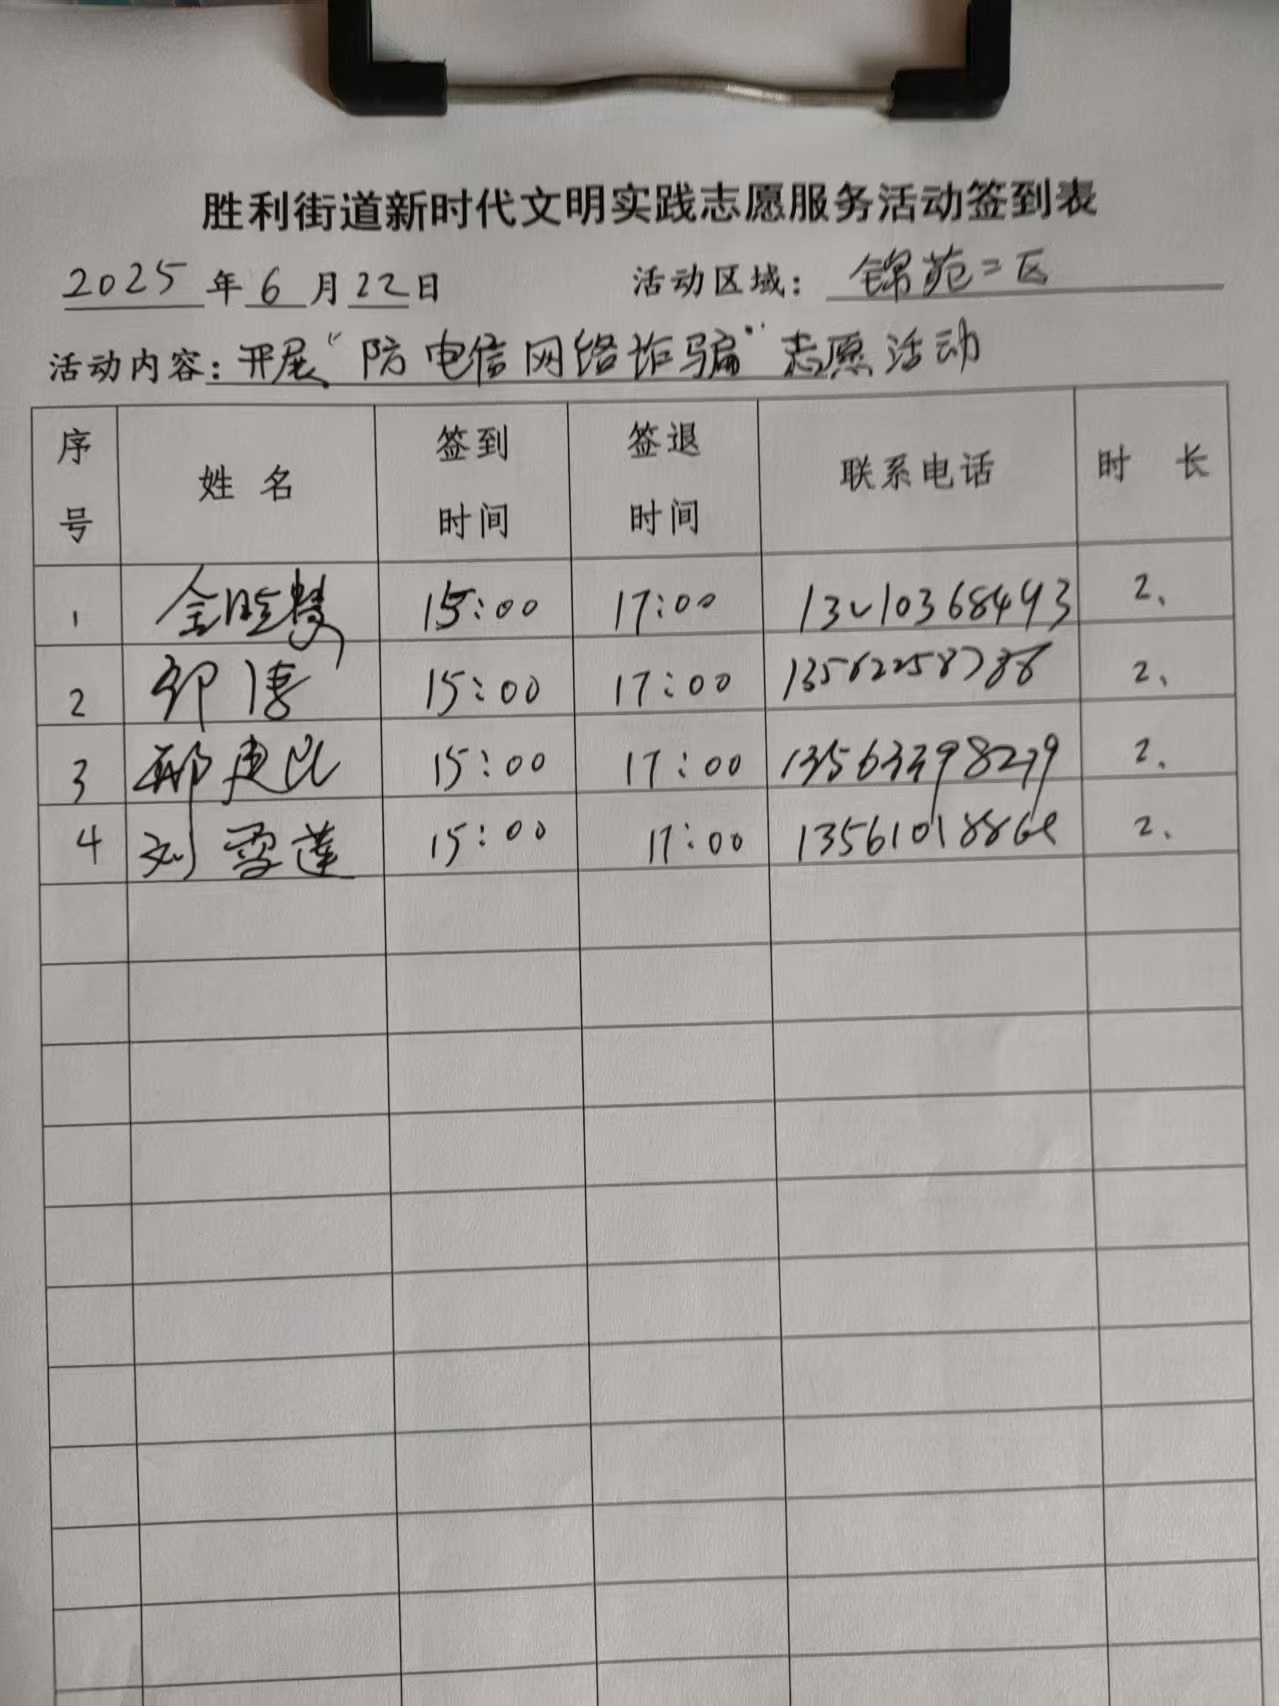 胜利街道新时代文明实践志愿服务活动签到表
2025年6月22日 活动区域：锦苑二区
活动内容：开展“防电信网络诈骗”志愿活动
序号 姓名 签到时间 签退时间 联系电话 时长
1 15:00 17:00 2、
2 15:00 17:00 13562258786 2、
3 15:00 17:00 2、
4 刘雪莲 15:00 17:00 2、